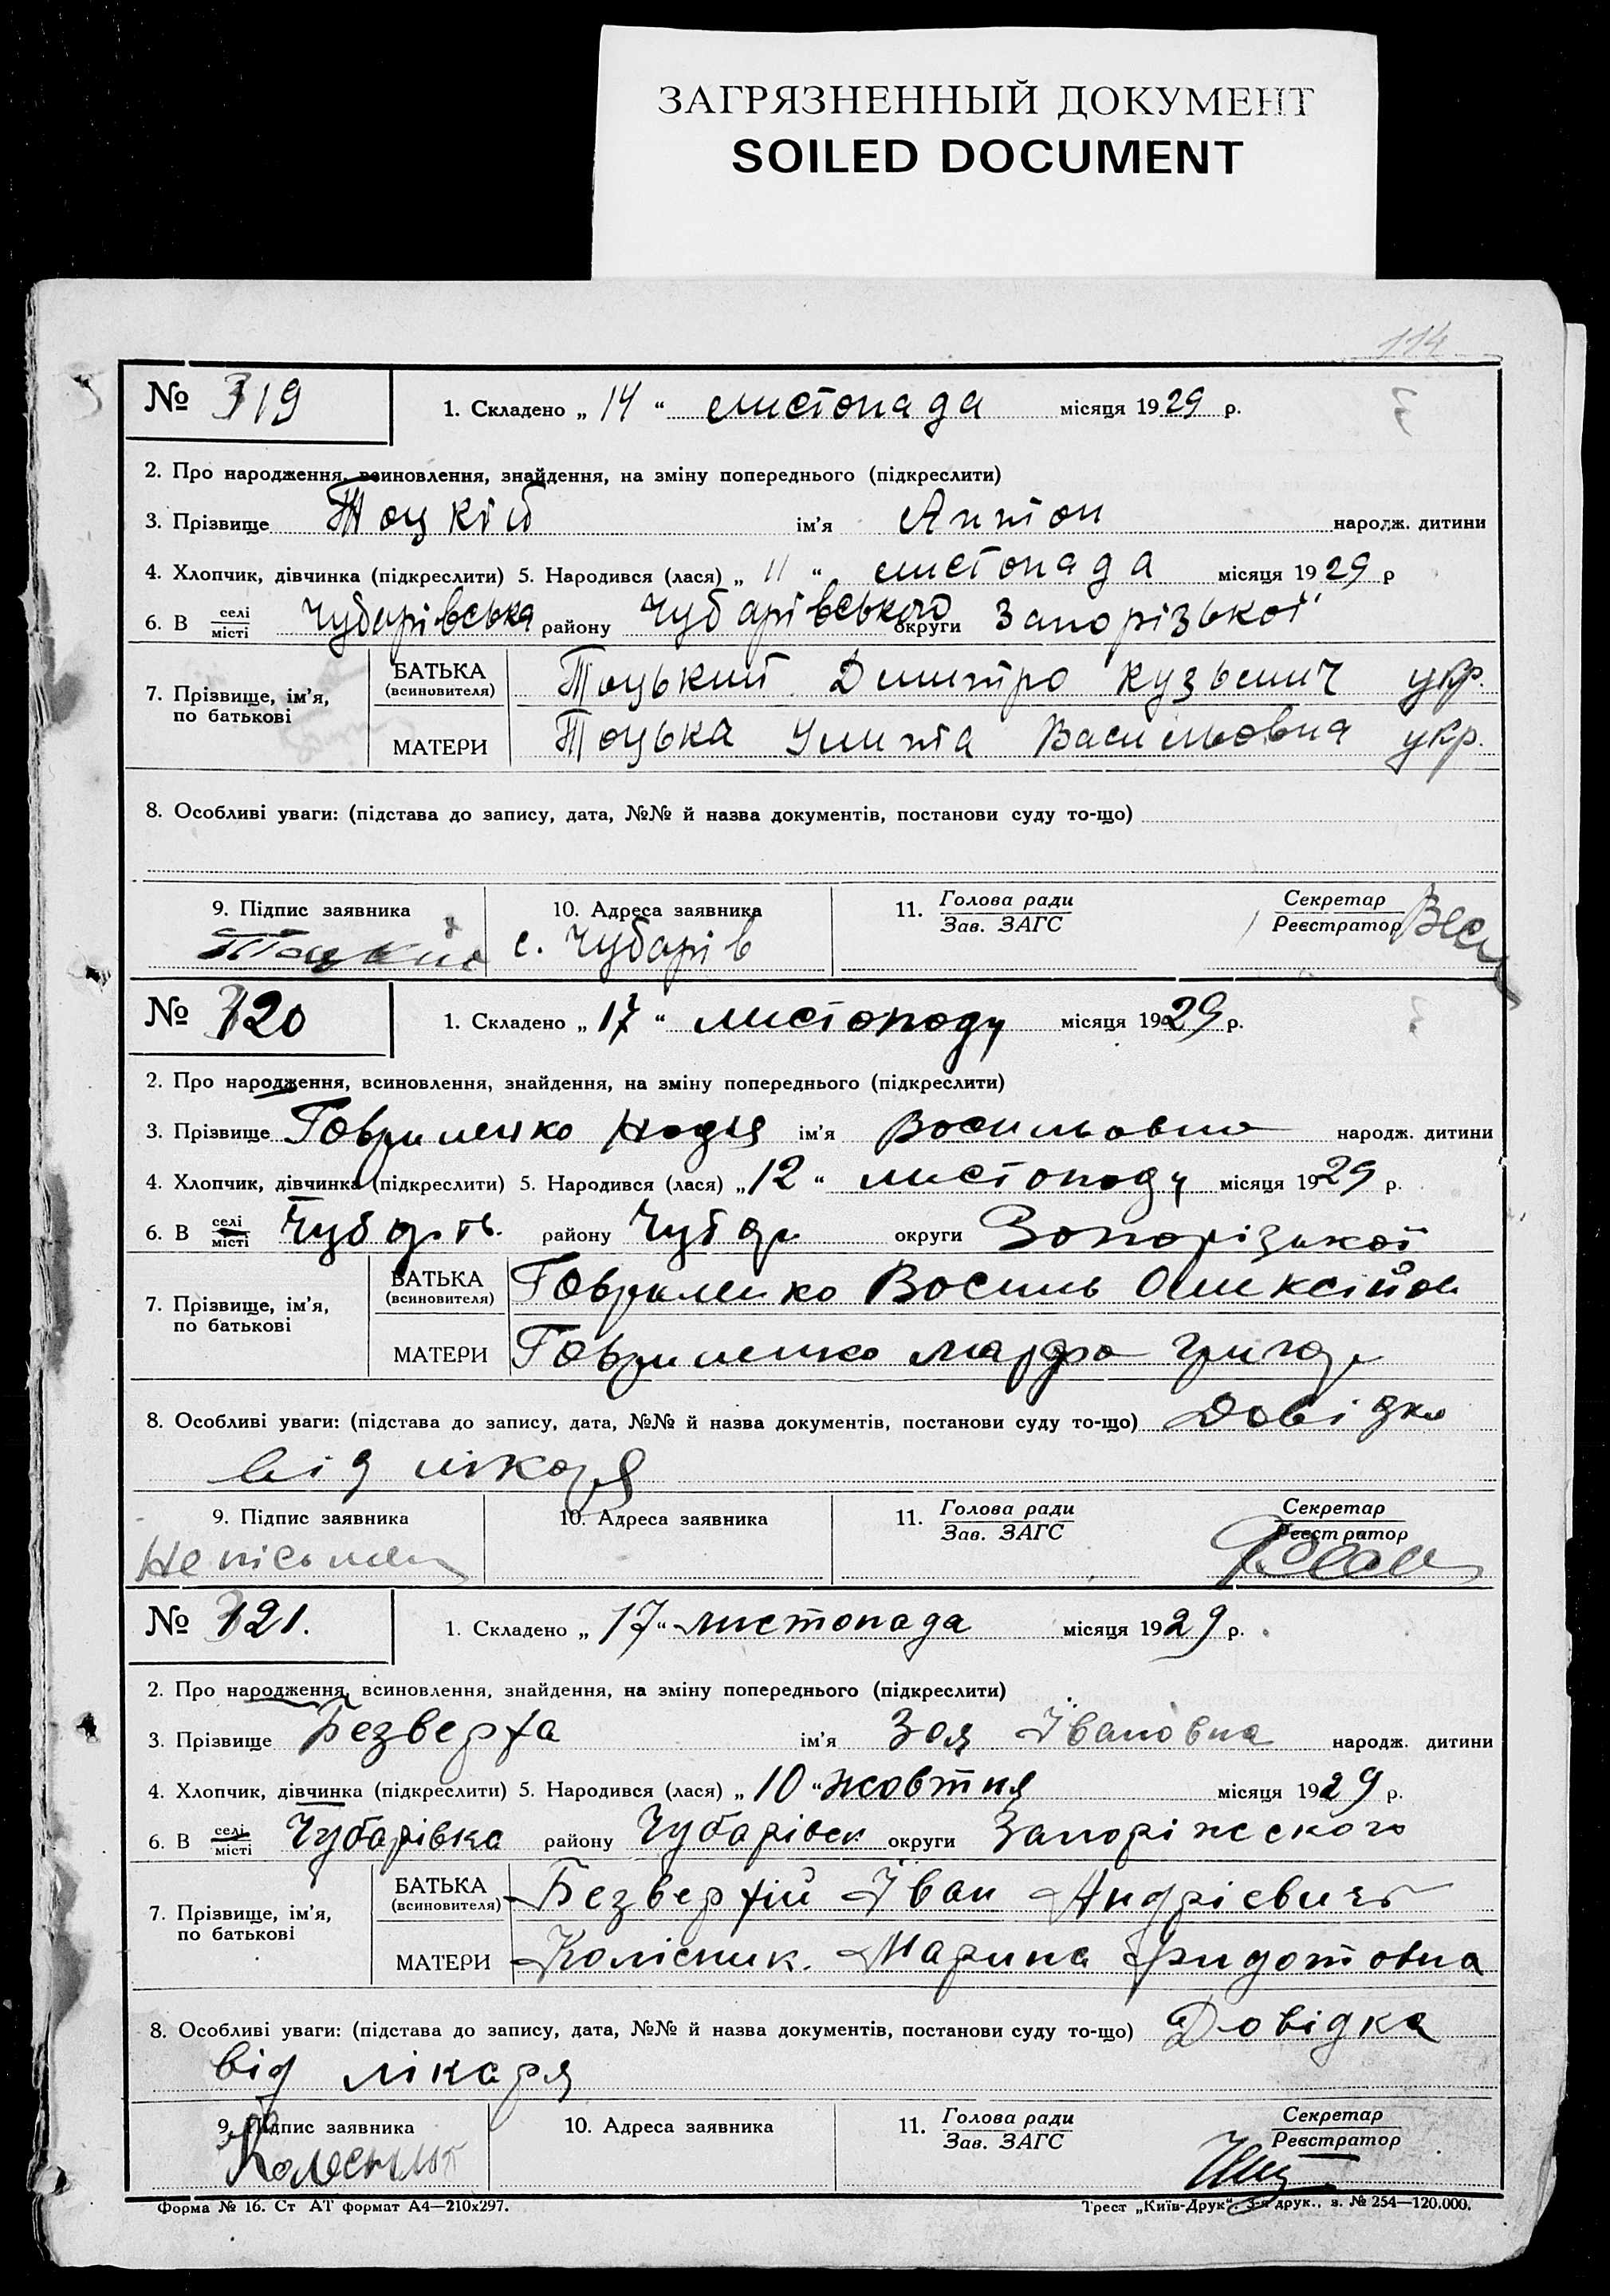 ЗАГРЯЗНЕННЫЙ ДОКУМЕНТ
SOILED DOCUMENT
114
№ 319
1. Складено „ 14 “ листопада місяця 1929 р.
2. Про народження, всиновлення, знайдення, на зміну попереднього (підкреслити)
3. Прізвище Тоцкій ім’я Антон народж. дитини
4. Хлопчик, дівчинка (підкреслити) 5. Народився (лася) „ 11 “ листопада місяця 1929 р
6. В селі/місті Чубарівська району Чубарівського округи Запорізької
7. Прізвище, ім’я, по батькові
БАТЬКА (всиновителя) Тоцький Дмитро Кузьмич укр.
МАТЕРИ Тоцька Улита Васильовна укр.
8. Особливі уваги: (підстава до запису, дата, №№ й назва документів, постанови суду то-що)
9. Підпис заявника 10. Адреса заявника 11. Голова ради/Зав. ЗАГС Секретар/Реєстратор
Тоцкій с. Чубарів
№ 320
1. Складено „ 17 “ листопаду місяця 1929 р.
2. Про народження, всиновлення, знайдення, на зміну попереднього (підкреслити)
3. Прізвище Гавриленко Надія ім’я Васильовна народж. дитини
4. Хлопчик, дівчинка (підкреслити) 5. Народився (лася) „ 12 “ листопаду місяця 1929 р.
6. В селі/місті Чубарів. району Чубар округи Запорізької
7. Прізвище, ім’я, по батькові
БАТЬКА (всиновителя) Гавриленко Василь Олексійов
МАТЕРИ Гавриленко Марфа Григор
8. Особливі уваги: (підстава до запису, дата, №№ й назва документів, постанови суду то-що) Довідка
від лікаря
9. Підпис заявника 10. Адреса заявника 11. Голова ради/Зав. ЗАГС Секретар/Реєстратор
№ 321.
1. Складено „ 17 “ листопада місяця 1929 р.
2. Про народження, всиновлення, знайдення, на зміну попереднього (підкреслити)
3. Прізвище Безверха ім’я Зоя Івановна народж. дитини
4. Хлопчик, дівчинка (підкреслити) 5. Народився (лася) „ 10 “ жовтня місяця 1929 р.
6. В селі/місті Чубарівка району Чубарівск округи Запоріжского
7. Прізвище, ім’я, по батькові
БАТЬКА (всиновителя) Безверхій Іван Андріевичъ
МАТЕРИ Колісник. Марина Фидотовна
8. Особливі уваги: (підстава до запису, дата, №№ й назва документів, постанови суду то-що) Довідка
від лікаря
9. Підпис заявника 10. Адреса заявника 11. Голова ради/Зав. ЗАГС Секретар/Реєстратор
Форма № 16. Ст АТ формат А4—210х297. Трест „Київ-Друк“. 3-я друк., з. № 254—120.000.